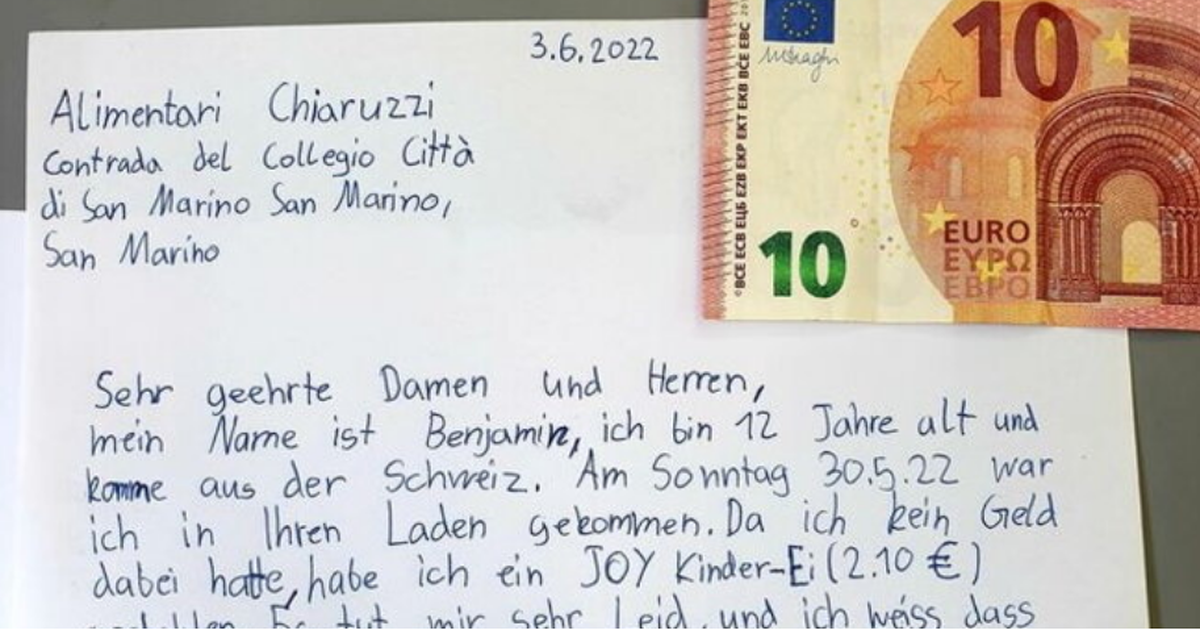 3.6.2022
Alimentari Chiaruzzi
Contrada del Collegio Città
di San Marino San Marino,
San Marino
Sehr geehrte Damen und Herren,
mein Name ist Benjamin, ich bin 12 Jahre alt und
komme aus der Schweiz. Am Sonntag 30.5.22 war
ich in Ihren Laden gekommen. Da ich kein Geld
dabei hatte, habe ich ein JOY Kinder-Ei (2.10 €)
Es tut mir sehr Leid, und ich weiss dass
10
BCE ECB ЕЦБ EZB EKP EKT EKB BĊE EBC
10
EURO
ΕΥΡΩ
ЕВРО